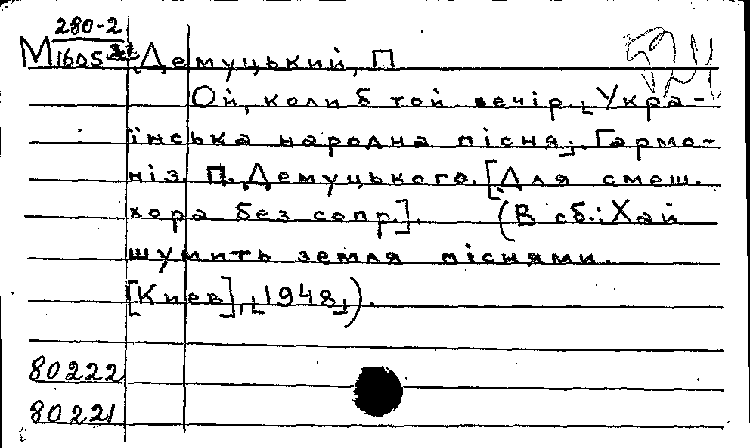 280-2
М1605
Демуцький, П
Ой, коли б той вечір. [Укра-
їнська народна пісня]. Гармо-
ніз. П. Демуцького. [Для смеш.
хора без сопр.]. (В сб.: Хай
шумить земля піснями.
[Киев], [1948]).
80222
80221